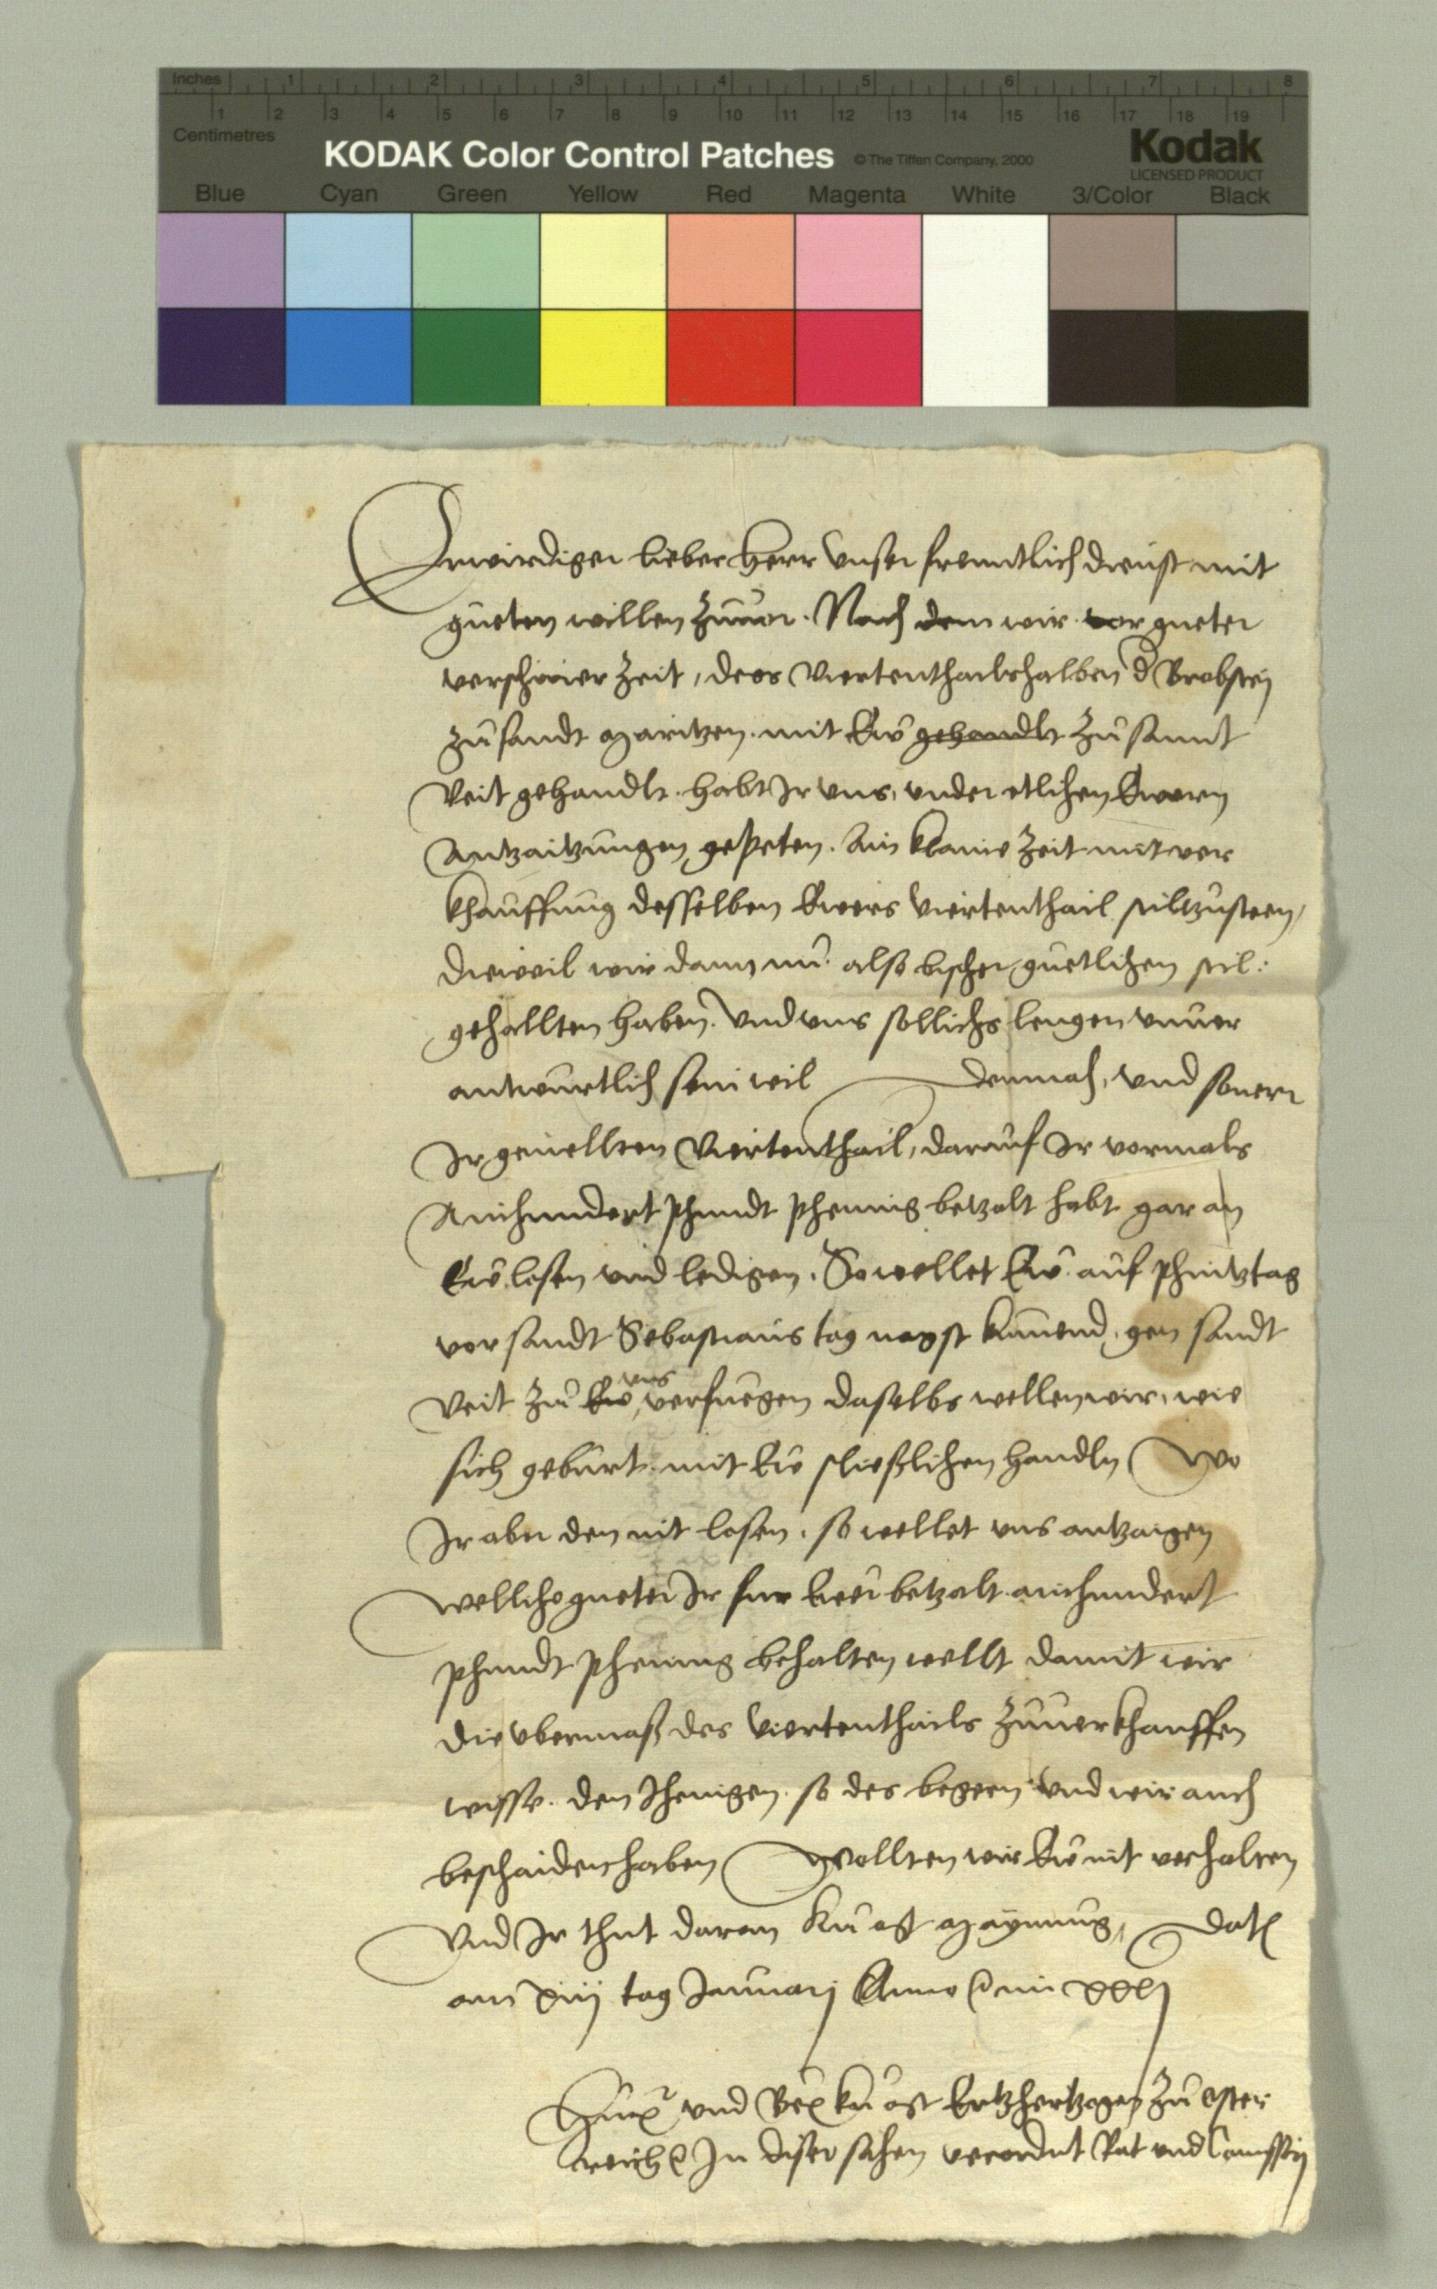 Inches 1 2 3 4 5 6 7 8
1 2 3 4 5 6 7 8 9 10 11 12 13 14 15 16 17 18 19
Centimetres
KODAK Color Control Patches © The Tiffen Company, 2000 Kodak
LICENSED PRODUCT
Blue Cyan Green Yellow Red Magenta White 3/Color Black
Erwirdiger lieber herr vnser freuntlich dienst mit
gueten willen zuuor. Nach dem wir vor gueter
verschiner Zeit, des Viertenthailshalben d Brobstey
zu sandt Maritzen mit Ew gehandlt zu sannt
Veit gehandlt. habt Ir vns, vnder etlichen Ewern
Antzaitzungen gepeten. Ain klaine Zeit mit ver
khauffung desselben Ewers viertenthail stilzusteen,
dieweil wir dann nu also bisher guetlichen stil:
gehallten haben. Vnd vns sollichs lenger vnuer
antwurtlich sein wil demnach, vnd souern
Ir gewellten Viertenthail, darauf Ir vormals
Ainhundert phundt phenning betzalt habt gar an
Ew losen vnd ledigen. So wellet Ew auf phintztag
vor sandt Sebastians tag negst kumend, gen sandt
Veit zu Ew vns verfuegen daselbs wellen wir, wie
sich geburt. mit Ew sliesslichen handln Wo
Ir aber den nit losen. so wellet vns antzaigen
wellche gueter Ir fur Eer betzalt ainhundert
phundt phening behalten wellt damit wir
die vbermass des viertenthails zuuerkhauffen
wisse. den Jhenigen so des begern vnd wir auch
beschaiden haben Wollten wir Ew nit verhalten
Vnd Ir thut daran ku mt maynung, Dat
am xiiij tag Januarj Anno dmi
vnd ku Ertzhertzogen zu Oster
reich In diser sachen verordnt Rat vnd Comissarj